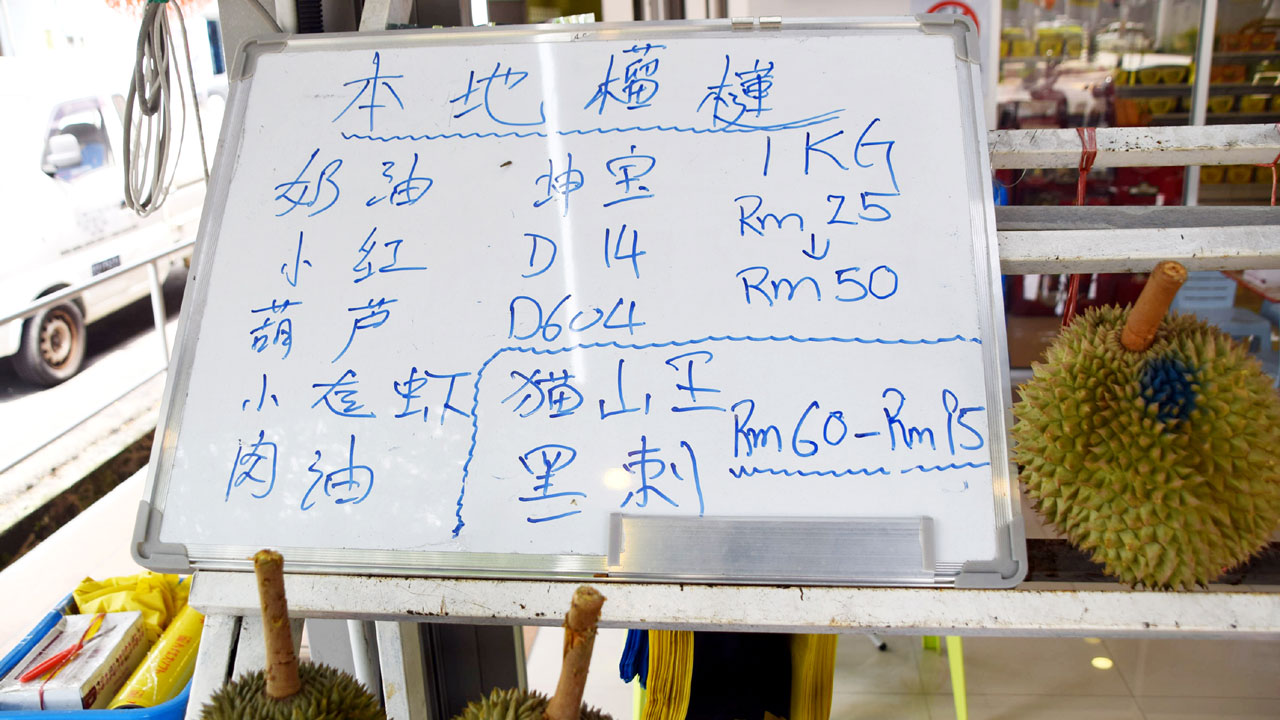 本地榴槤
奶油 坤宝 1KG
Rm 25
小红 D14
↓
Rm 50
葫芦 D604
小 虾 猫山王
Rm 60 - Rm 95
肉油 黑刺